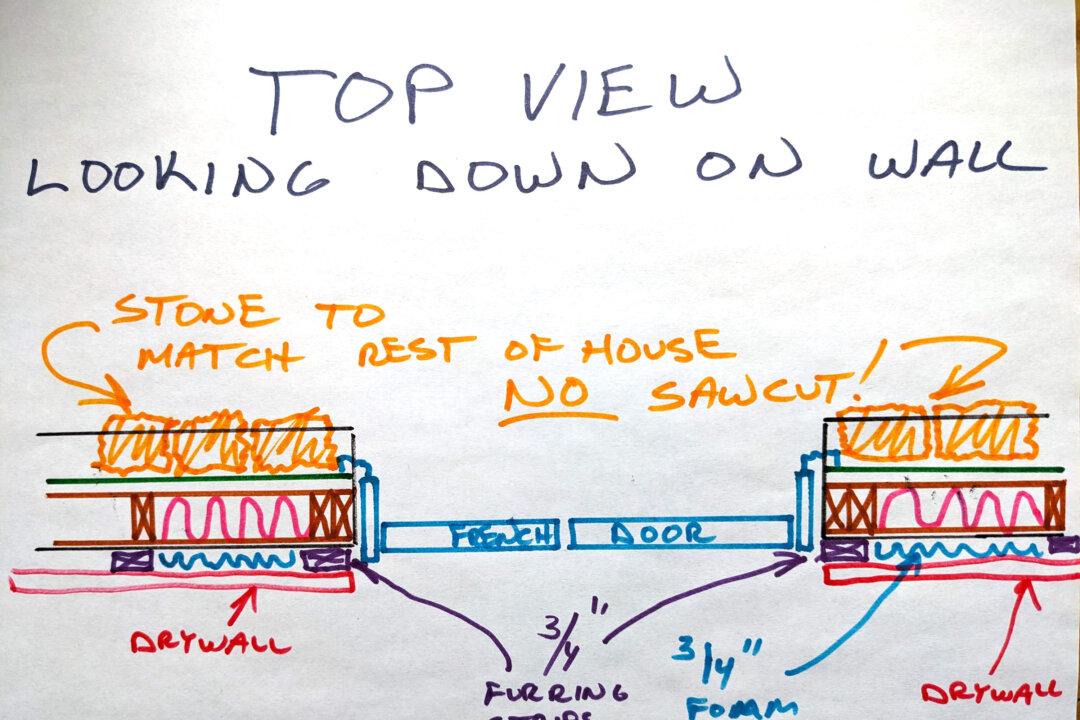 TOP VIEW
LOOKING DOWN ON WALL
STONE TO
MATCH REST OF HOUSE
NO SAWCUT!
FRENCH DOOR
DRYWALL
3/4"
FURRING
STRIPS
3/4"
FOAM
DRYWALL